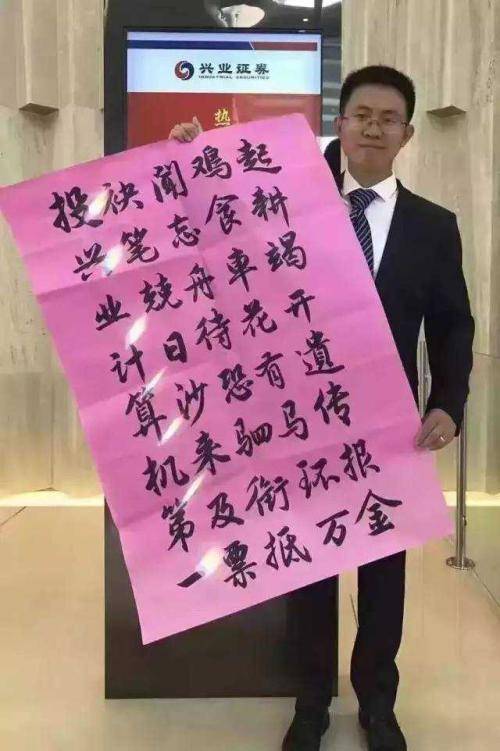 兴业证券
INDUSTRIAL SECURITIES
热
投袂闻鸡起
兴笔忘食耕
业兢舟車竭
计日待花开
算沙恐有遺
机来驷马传
第及衔环报
一票抵万金